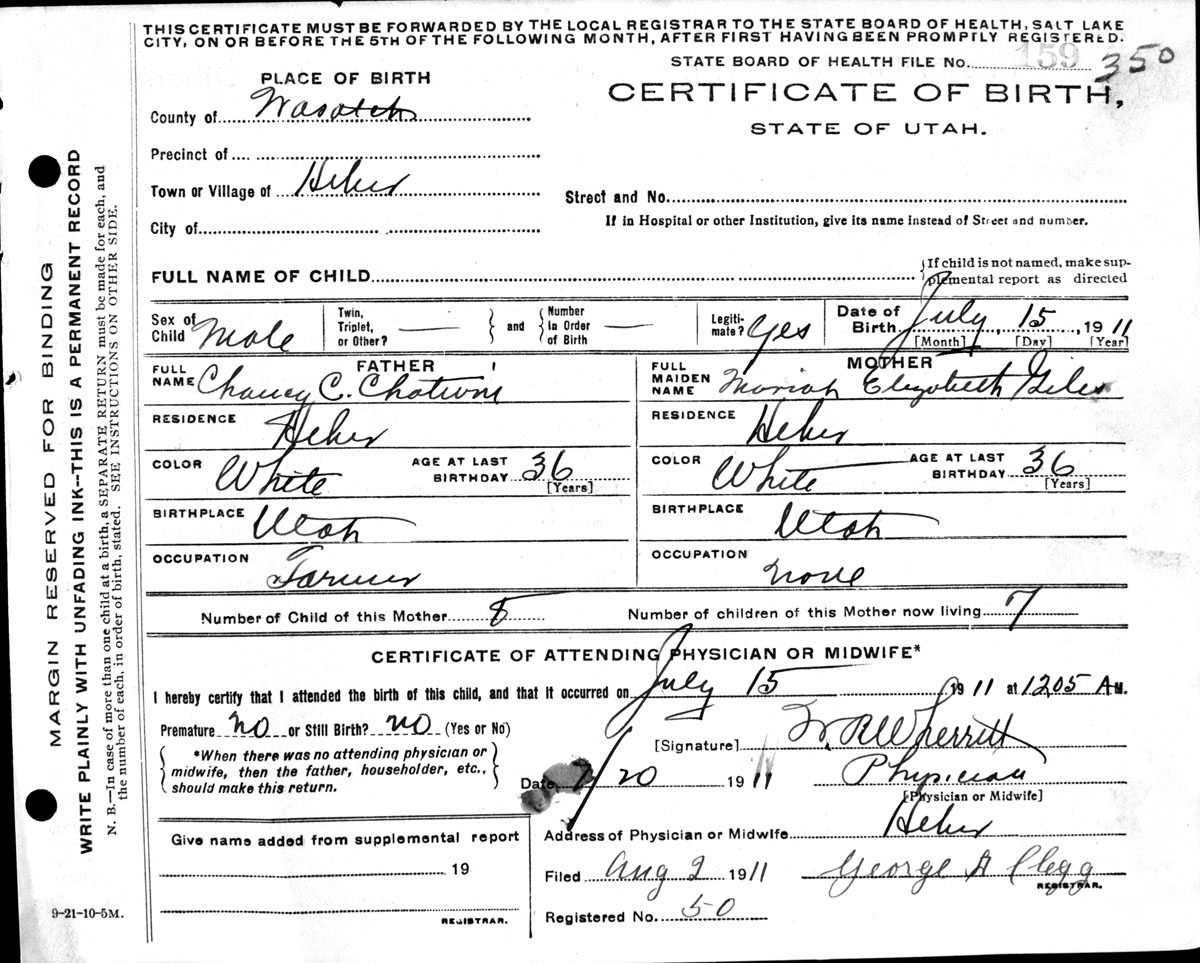 THIS CERTIFICATE MUST BE FORWARDED BY THE LOCAL REGISTRAR TO THE STATE BOARD OF HEALTH, SALT LAKE
CITY, ON OR BEFORE THE 5TH OF THE FOLLOWING MONTH, AFTER FIRST HAVING BEEN PROMPTLY REGISTERED.
STATE BOARD OF HEALTH FILE No. 159 350
PLACE OF BIRTH
CERTIFICATE OF BIRTH,
STATE OF UTAH.
County of Wasatch
Precinct of
Town or Village of Heber
Street and No.
City of
If in Hospital or other Institution, give its name instead of Street and number.
FULL NAME OF CHILD
If child is not named, make sup-
plemental report as directed
Sex of Child Male
Twin, Triplet, or Other? —
and
Number In Order of Birth —
Legiti-mate? Yes
Date of Birth July 15, 1911
[Month] [Day] [Year]
FATHER
FULL NAME Chancy C. Chatwin
RESIDENCE Heber
COLOR White AGE AT LAST BIRTHDAY 36
[Years]
BIRTHPLACE Utah
OCCUPATION Farmer
MOTHER
FULL MAIDEN NAME Mariah Elizabeth Giles
RESIDENCE Heber
COLOR White AGE AT LAST BIRTHDAY 36
[Years]
BIRTHPLACE Utah
OCCUPATION None
Number of Child of this Mother 8 Number of children of this Mother now living 7
CERTIFICATE OF ATTENDING PHYSICIAN OR MIDWIFE*
I hereby certify that I attended the birth of this child, and that it occurred on July 15 1911 at 1205 A M.
Premature No or Still Birth? No (Yes or No)
*When there was no attending physician or
midwife, then the father, householder, etc.,
should make this return.
[Signature] W. R. Wherritt
Date 20 1911 Physician
[Physician or Midwife]
Address of Physician or Midwife Heber
Give name added from supplemental report
19
REGISTRAR.
Filed Aug 2 1911 George A Clegg
REGISTRAR.
Registered No. 50
9-21-10-5M.
MARGIN RESERVED FOR BINDING
WRITE PLAINLY WITH UNFADING INK--THIS IS A PERMANENT RECORD
N. B.—In case of more than one child at a birth, a SEPARATE RETURN must be made for each, and
the number of each, in order of birth, stated. SEE INSTRUCTIONS ON OTHER SIDE.